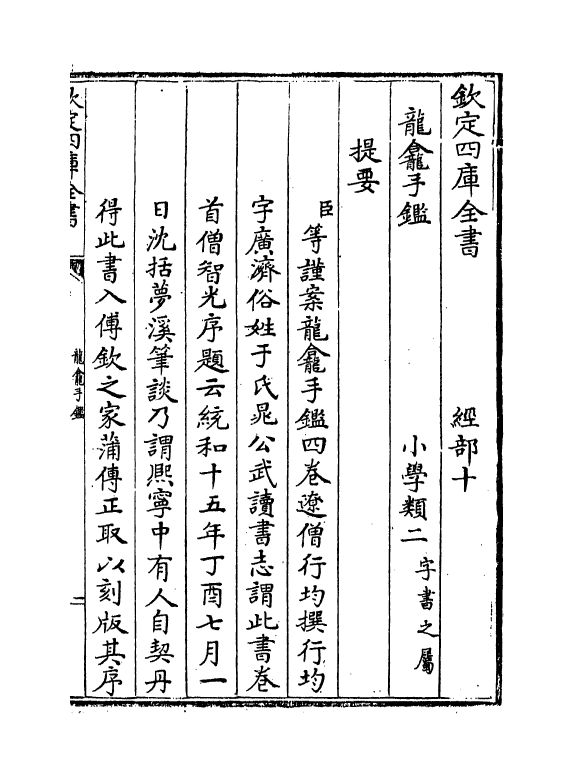 欽定四庫全書　經部十
龍龕手鑑　小學類二字書之屬
提要
臣等謹案龍龕手鑑四卷遼僧行均撰行均
字廣濟俗姓于氏晁公武讀書志謂此書卷
首僧智光序題云統和十五年丁酉七月一
日沈括夢溪筆談乃謂熙寧中有人自契丹
得此書入傅欽之家蒲傳正取以刻版其序
欽定四庫全書
龍龕手鑑